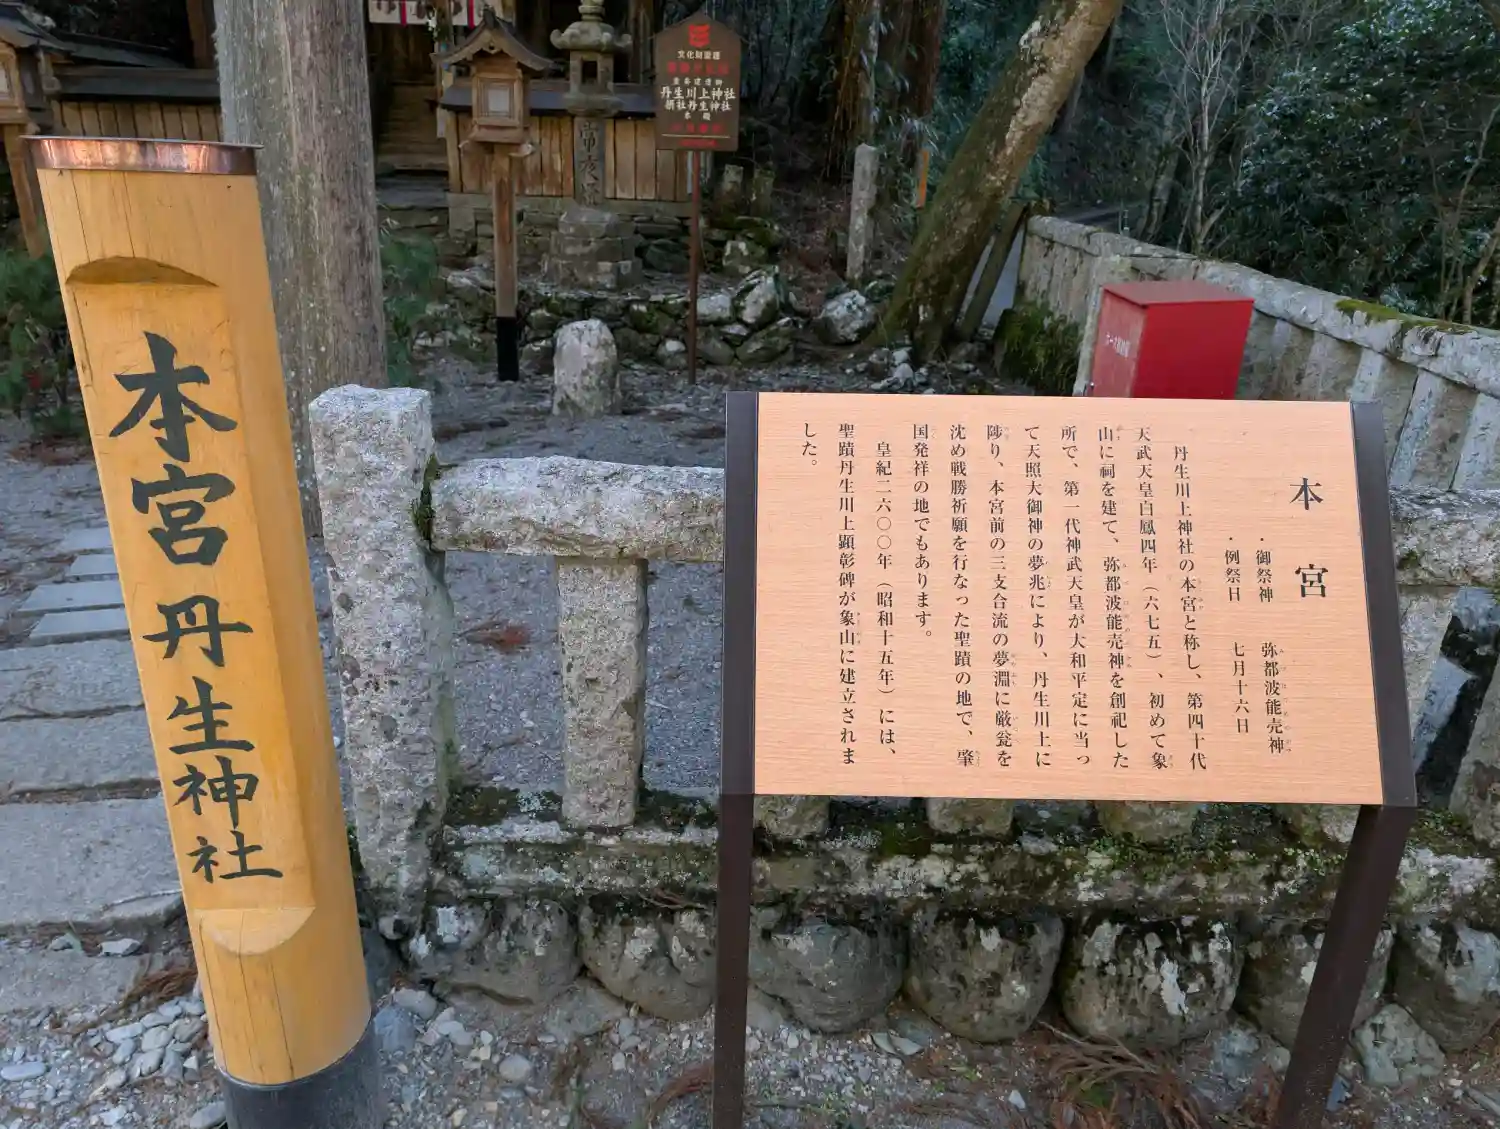 本宮丹生神社
文化財愛護
重要建造物
丹生川上神社
摂社丹生神社
本殿
本宮
・御祭神 弥都波能売神
・例祭日 七月十六日
丹生川上神社の本宮と称し、第四十代
天武天皇白鳳四年（六七五）、初めて象
山に祠を建て、弥都波能売神を創祀した
所で、第一代神武天皇が大和平定に当っ
て天照大御神の夢兆により、丹生川上に
陟り、本宮前の三支合流の夢淵に厳瓮を
沈め戦勝祈願を行なった聖蹟の地で、肇
国発祥の地でもあります。
皇紀二六〇〇年（昭和十五年）には、
聖蹟丹生川上顕彰碑が象山に建立されま
した。